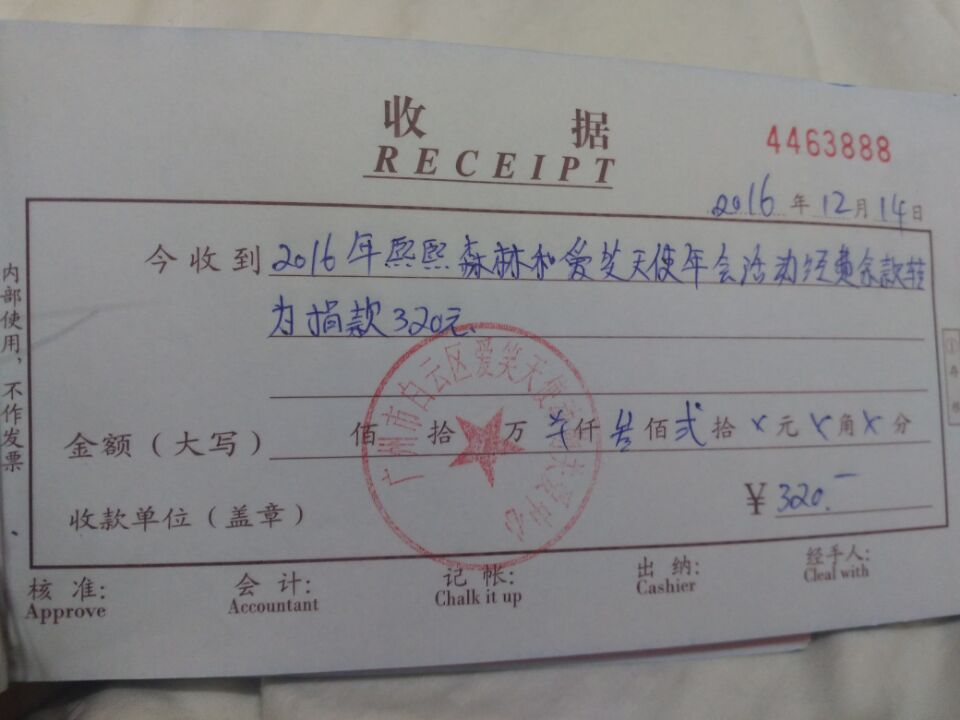 收 据
RECEIPT
4463888
2016 年 12 月 14 日
今收到 2016年熙熙森林和爱笑天使年会活动经费余款转
为捐款320元.
金额（大写） 佰 拾 万 仟 叁 佰 贰 拾 元 角 分
收款单位（盖章） ¥ 320.—
广州市白云区爱笑天使 关爱中心
核 准: 会 计: 记 帐: 出 纳: 经手人:
Approve Accountant Chalk it up Cashier Cleal with
内部使用，不作发票